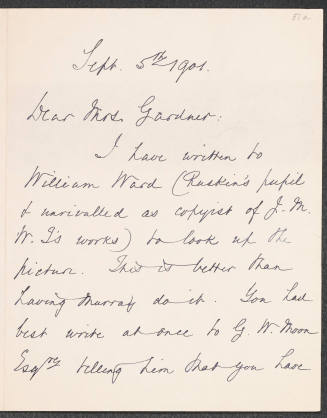 Sept. 5th 1901.
Dear Mrs. Gardner:
I have written to
William Ward (Ruskin's pupil
& unrivalled as copyist of J. M.
W. T's works) to look up the
picture. This is better than
having Murray do it. You had
best write at once to G. W. Moon
Esqre telling him that you have